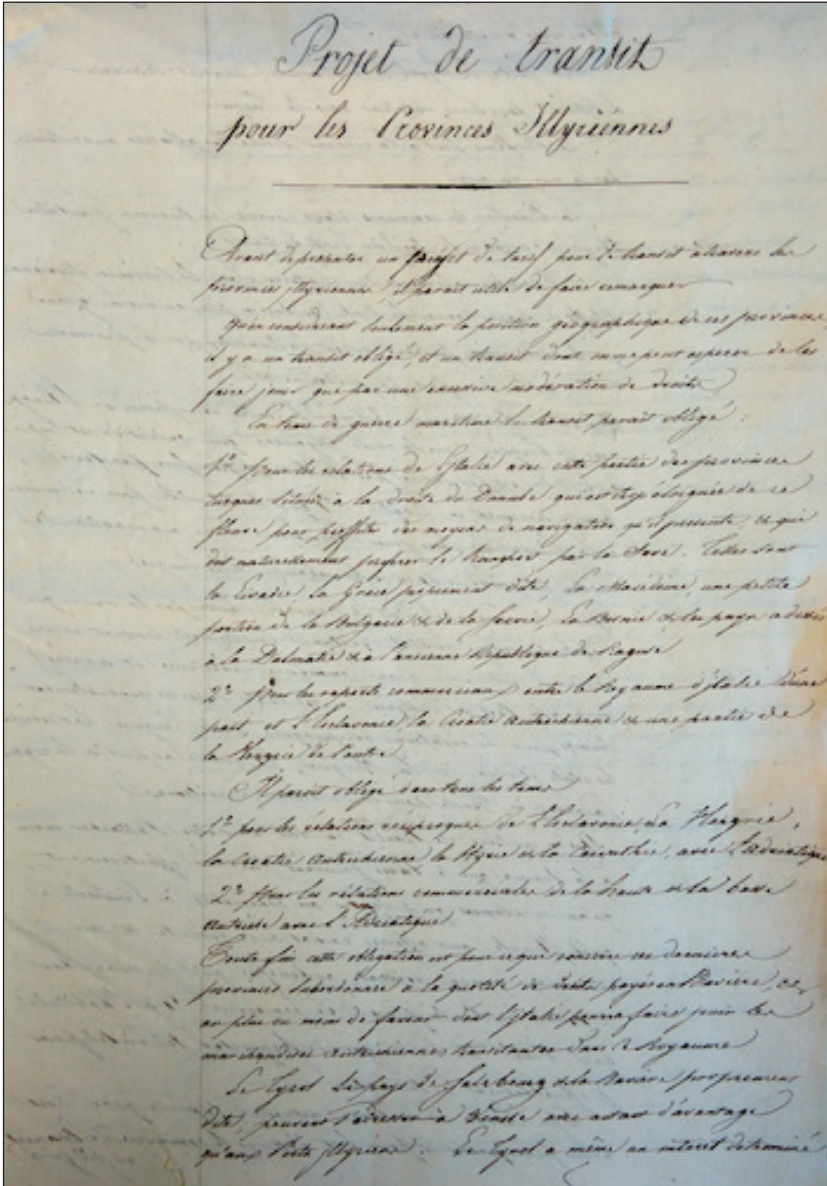 Projet de transit
pour les Provinces Illyriénnes
Avant de presenter un projet de tarif pour le transit à travers les
provinces Illyriennes, il parait utile de faire remarquer
Qu'en considerant seulement la position géographique de ces provinces,
il y a un transit obligé, et un transit dont on ne peut esperer de les
faire jouir que par une excessive modération de droits
En tems de guerre maritime le transit parait obligé :
1º Pour les relations de l'Italie avec cette partie des provinces
turques située à la droite du Danube qui est trop éloignée de ce
fleuve pour proffiter des moyens de navigation qu'il presente, & qui
doit naturellement preferer le transport par la Save. Telles sont
la Livadie, la Grèce proprement dite, la Macédoine, une petite
portion de la Bulgarie & de la Servie, la Bosnie & les pays adossés
à la Dalmatie & à l'ancienne Republique de Raguse
2º Pour les raports commerciaux entre le Royaume d'Italie d'une
part, et l'Esclavonie, la Croatie autrichienne & une partie de
la Hongrie de l'autre
Il parait obligé dans tous les tems
1º pour les rélations réciproques de l'Esclavonie, la Hongrie,
la Croatie autrichienne, la Styrie & la Carinthie, avec l'Adriatique
2º Pour les rélations commerciales de la haute & la basse
Autriche avec l'Adriatique
Toute fois cette obligation est pour ce qui concerne ces dernieres
provinces subordonnée à la quotité de droits payés en Bavière, &
au plus ou moins de faveur dont l'Italie pourra faire jouir les
marchandises autrichiennes transitantes dans le Royaume
Le Tyrol le pays de Salzbourg & la Bavière proprement
dite, peuvent s'adresser à Venise avec autant d'avantage
qu'aux Ports Illyriens. Le Tyrol a même un intérêt determiné